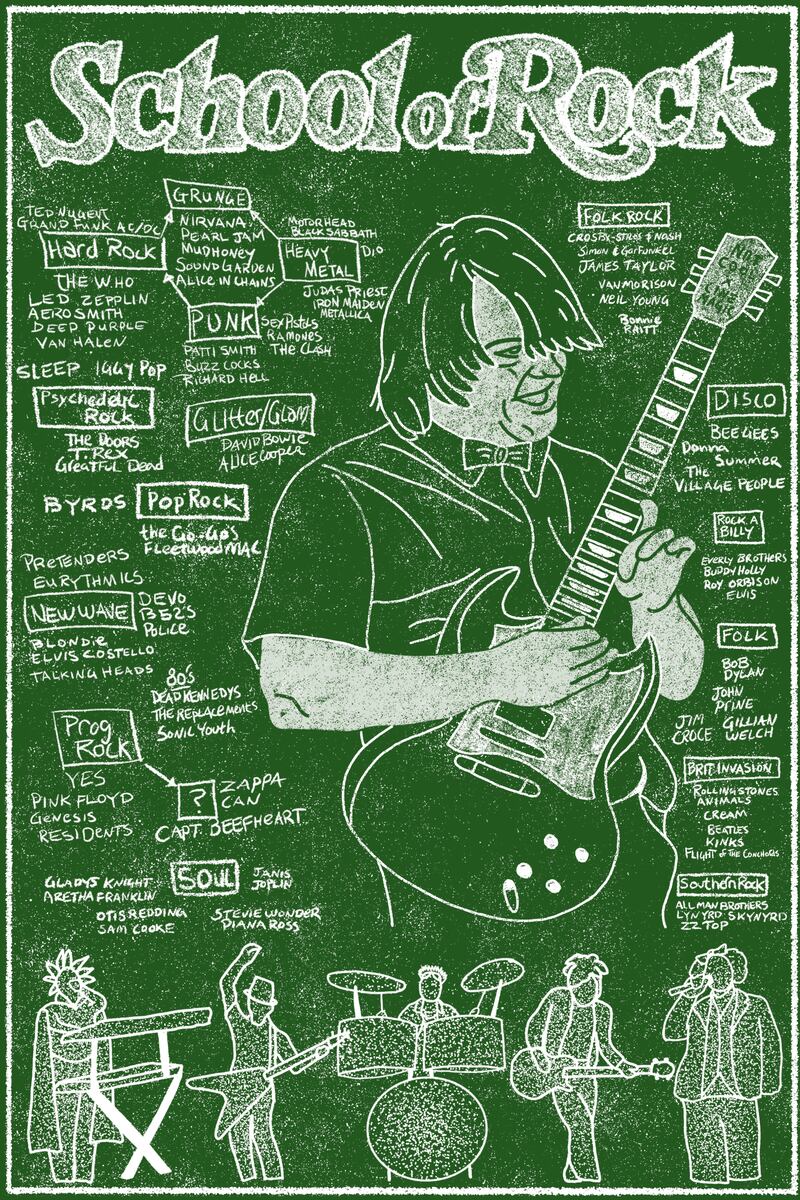 School of Rock
GRUNGE
NIRVANA
PEARL JAM
MUDHONEY
SOUNDGARDEN
ALICE IN CHAINS
TED NUGENT
GRAND FUNK AC/DC
Hard Rock
THE WHO
LED ZEPPLIN
AEROSMITH
DEEP PURPLE
VAN HALEN
MOTORHEAD
BLACK SABBATH
HEAVY
METAL
DIO
JUDAS PRIEST
IRON MAIDEN
METALLICA
PUNK
SEX PISTOLS
RAMONES
THE CLASH
PATTI SMITH
BUZZ COCKS
RICHARD HELL
SLEEP IGGY POP
Psychedelic
Rock
The Doors
T. Rex
Greatful Dead
Glitter/Glam
DAVID BOWIE
ALICE COOPER
BYRDS
Pop Rock
the Go-Go's
Fleetwood MAC
PRETENDERS
EURYTHMICS
NEW WAVE
DEVO
B52'S
POLICE
BLONDIE
ELVIS COSTELLO
TALKING HEADS
80's
DEAD KENNEDYS
THE REPLACEMENTS
SONIC YOUTH
Prog
Rock
YES
PINK FLOYD
GENESIS
RESIDENTS
?
ZAPPA
CAN
CAPT. BEEFHEART
SOUL
JANIS
JOPLIN
GLADYS KNIGHT
ARETHA FRANKLIN
OTIS REDDING
SAM COOKE
STEVIE WONDER
DIANA ROSS
FOLK ROCK
CROSBY-STILLS & NASH
Simon & Garfunkel
JAMES TAYLOR
VAN MORISON
NEIL YOUNG
Bonnie
RAITT
DISCO
BEE GEES
Donna
Summer
The
VILLAGE PEOPLE
ROCK A
BILLY
EVERLY BROTHERS
BUDDY HOLLY
ROY ORBISON
ELVIS
FOLK
BOB
DYLAN
JOHN
PRINE
JIM
CROCE
GILLIAN
WELCH
BRIT INVASION
ROLLING STONES
ANIMALS
CREAM
BEATLES
KINKS
FLIGHT of THE CONCHORDS
Southern Rock
ALLMAN BROTHERS
LYNYRD SKYNYRD
ZZ TOP